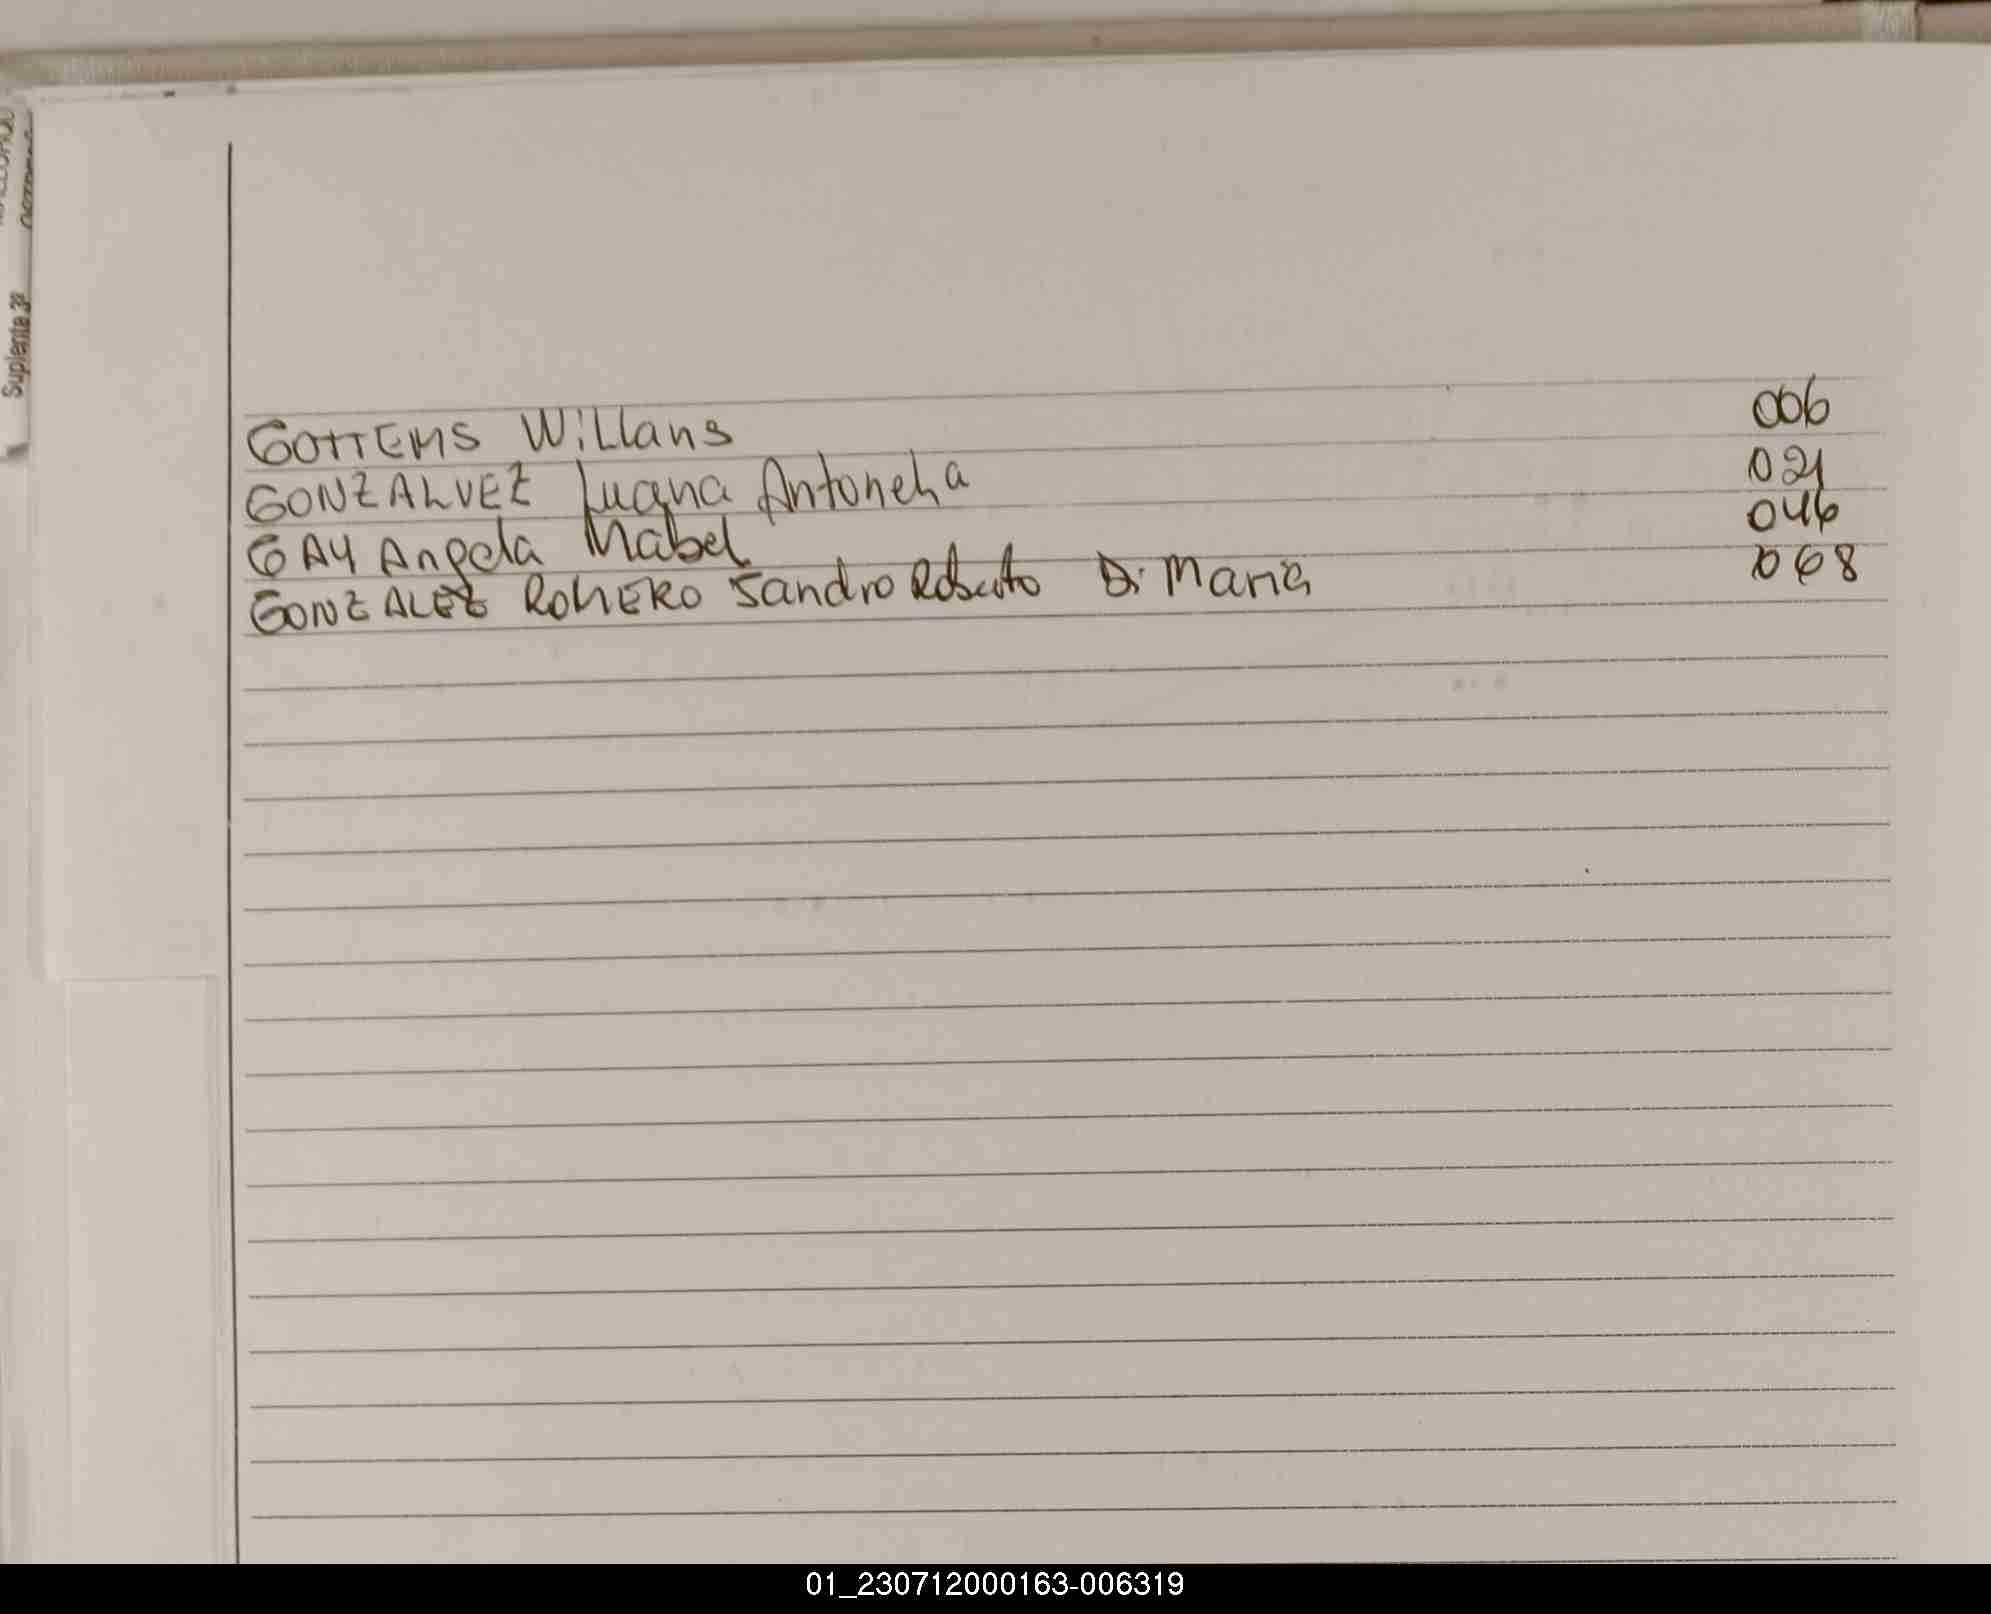 GOTTEMS Willans 006
GONZALVEZ Luana Antonella 021
GAY Angela Mabel 046
GONZALEZ ROMERO Sandro Roberto Di Maria 068
Suplente 3º
01_230712000163-006319